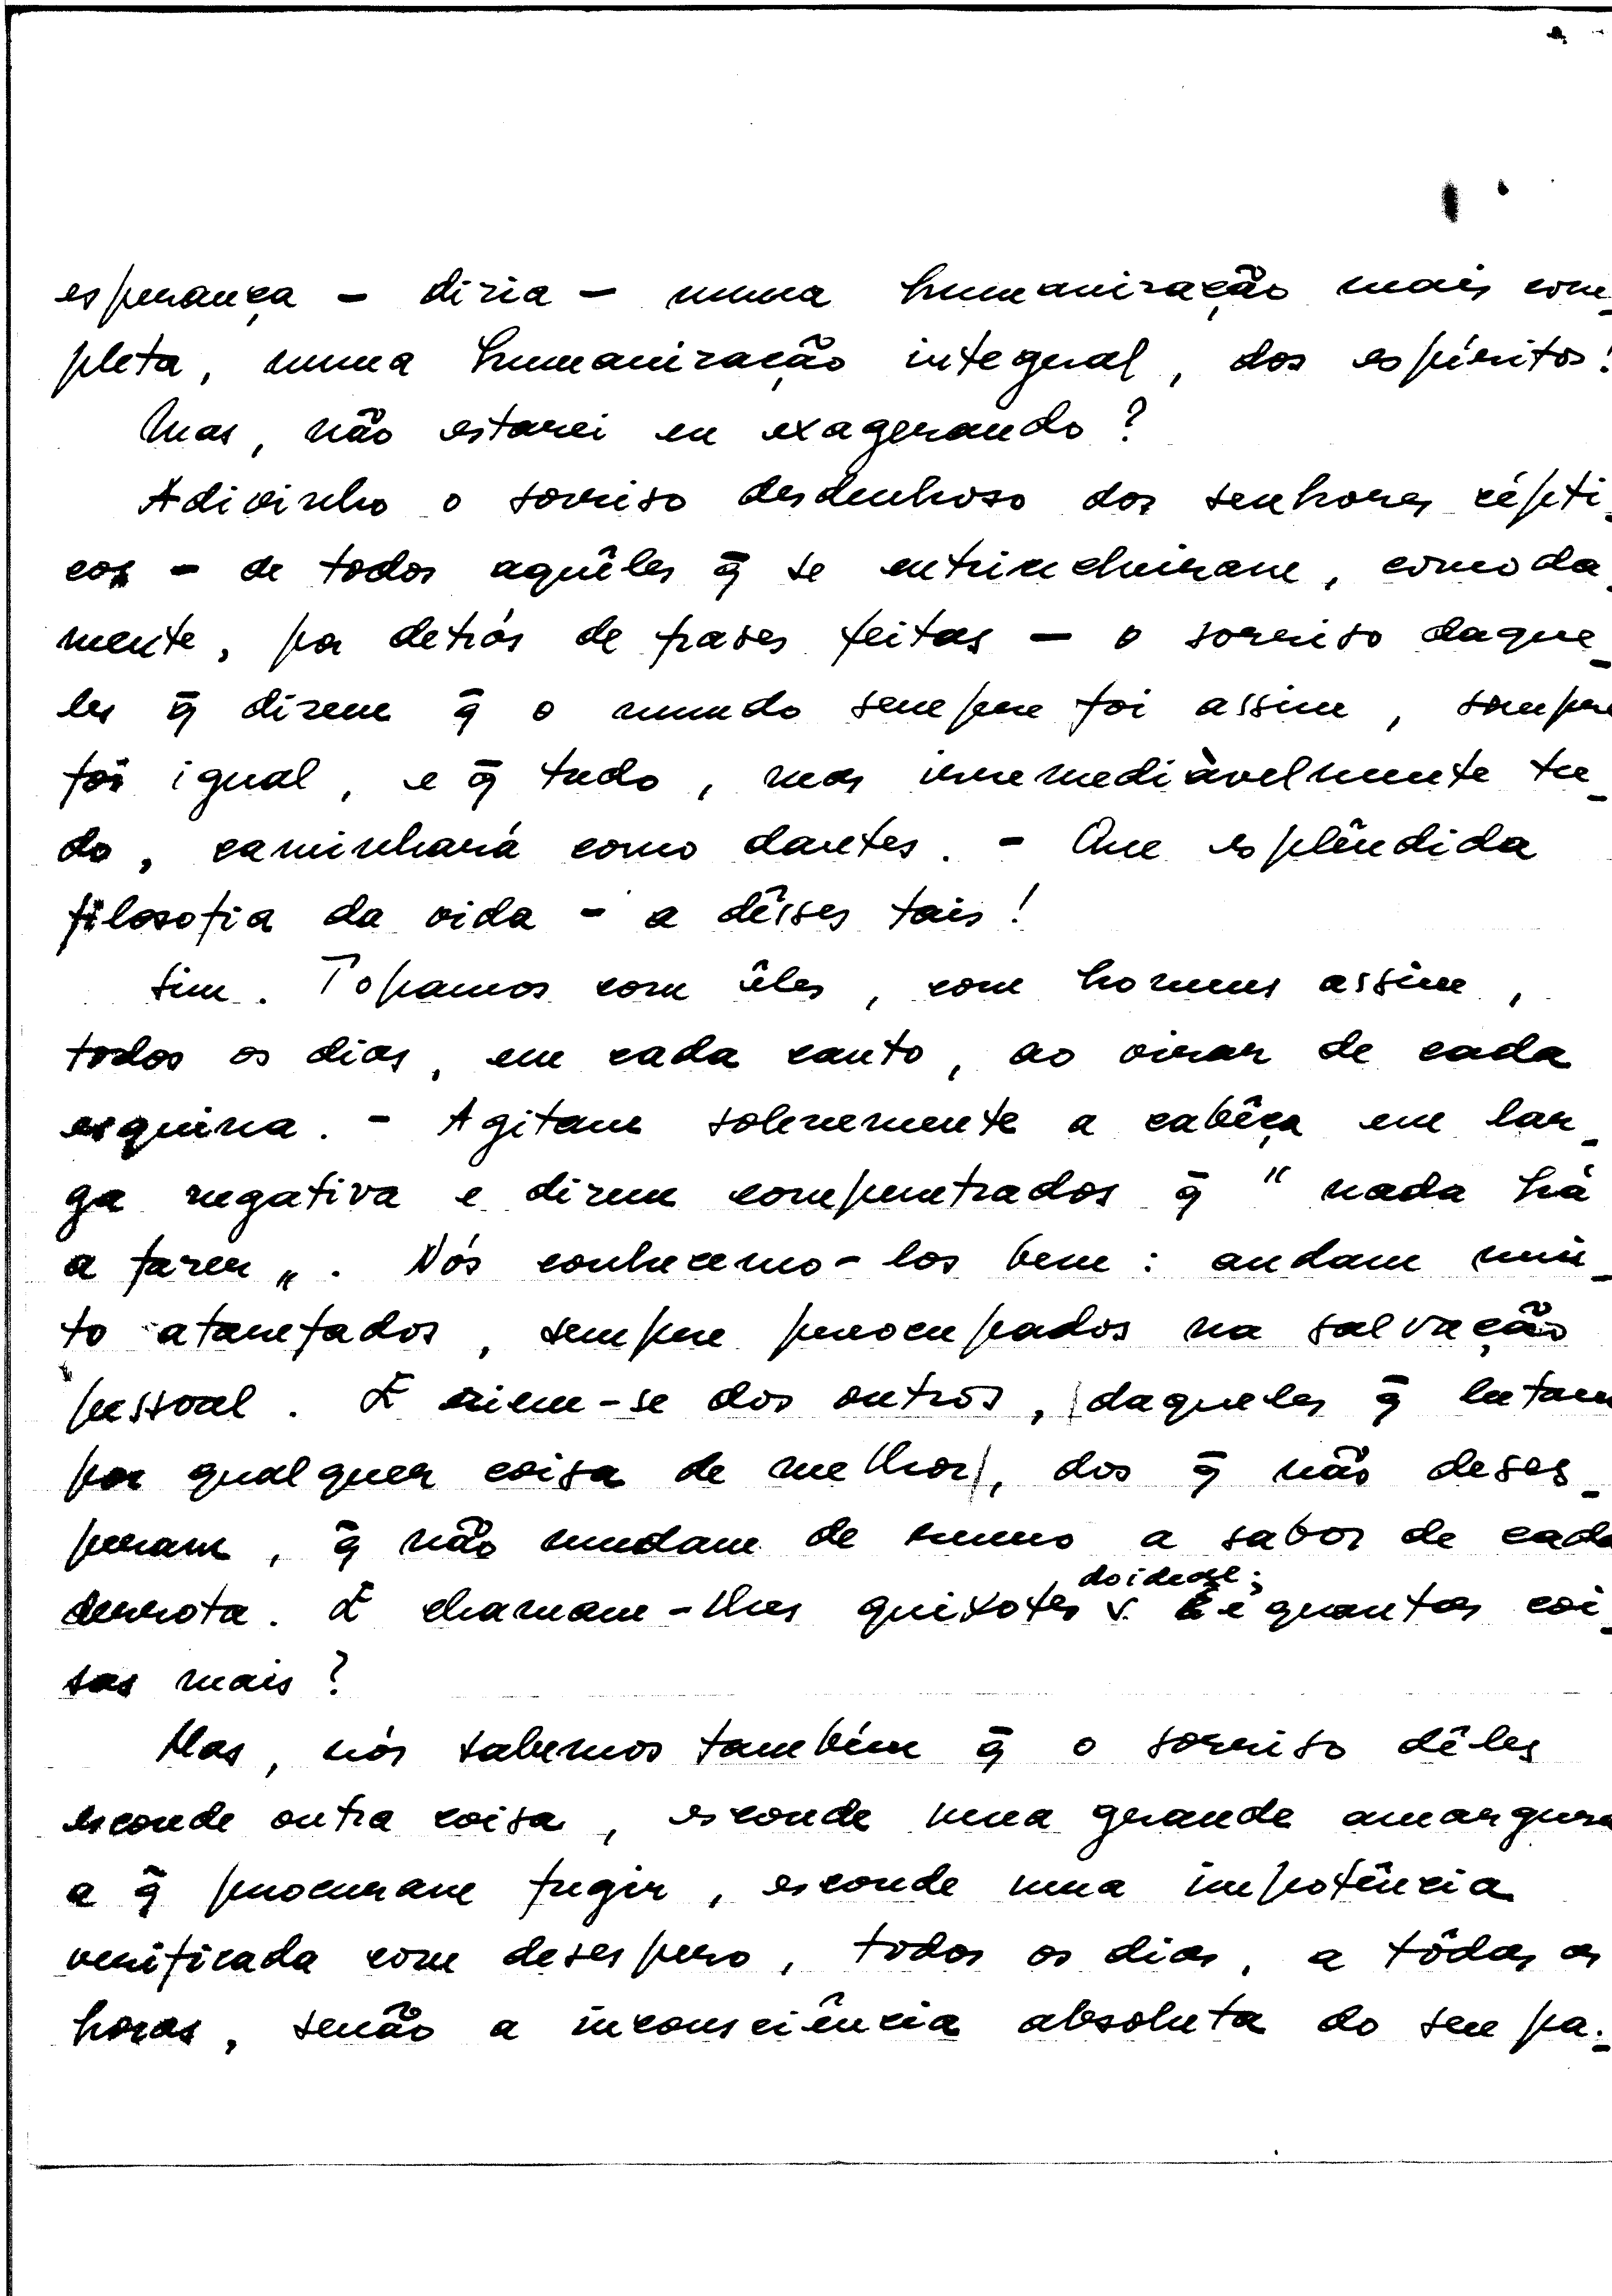 esperança – diria – numa humanização mais com-
pleta, numa humanização integral, dos espíritos!
Mas, não estarei eu exagerando?
Adivinho o sorriso desdenhoso dos senhores cépti-
cos – de todos aquêles q̃ se entrincheiram, comoda-
mente, por detrás de frases feitas – o sorriso daque-
les q̃ dizem q̃ o mundo sempre foi assim, sempre
foi igual, e q̃ tudo, mas irremediàvelmente tu-
do, caminhará como dantes. – Que esplêndida
filosofia da vida – a dêsses tais!
Sim. Topamos com êles, com homens assim,
todos os dias, em cada canto, ao virar de cada
esquina. – Agitam solenemente a cabêça em lar-
ga negativa e dizem compenetrados q̃ "nada há
a fazer„. Nós conhecemo-los bem: andam mui-
to atarefados, sempre preocupados na salvação
pessoal. E riem-se dos outros, |daqueles q̃ lutam
por qualquer coisa de melhor|, dos q̃ não deses-
peram, q̃ não mudam de rumo a sabor de cada
doidos;
derrota. E chamam-lhes quixotes v. e quantas coi-
sas mais?
Mas, nós sabemos também q̃ o sorriso dêles
esconde outra coisa, esconde uma grande amargura
a q̃ procuram fugir, esconde uma impotência
verificada com desespero, todos os dias, a tôdas as
horas, senão a inconsciência absoluta do seu pa-